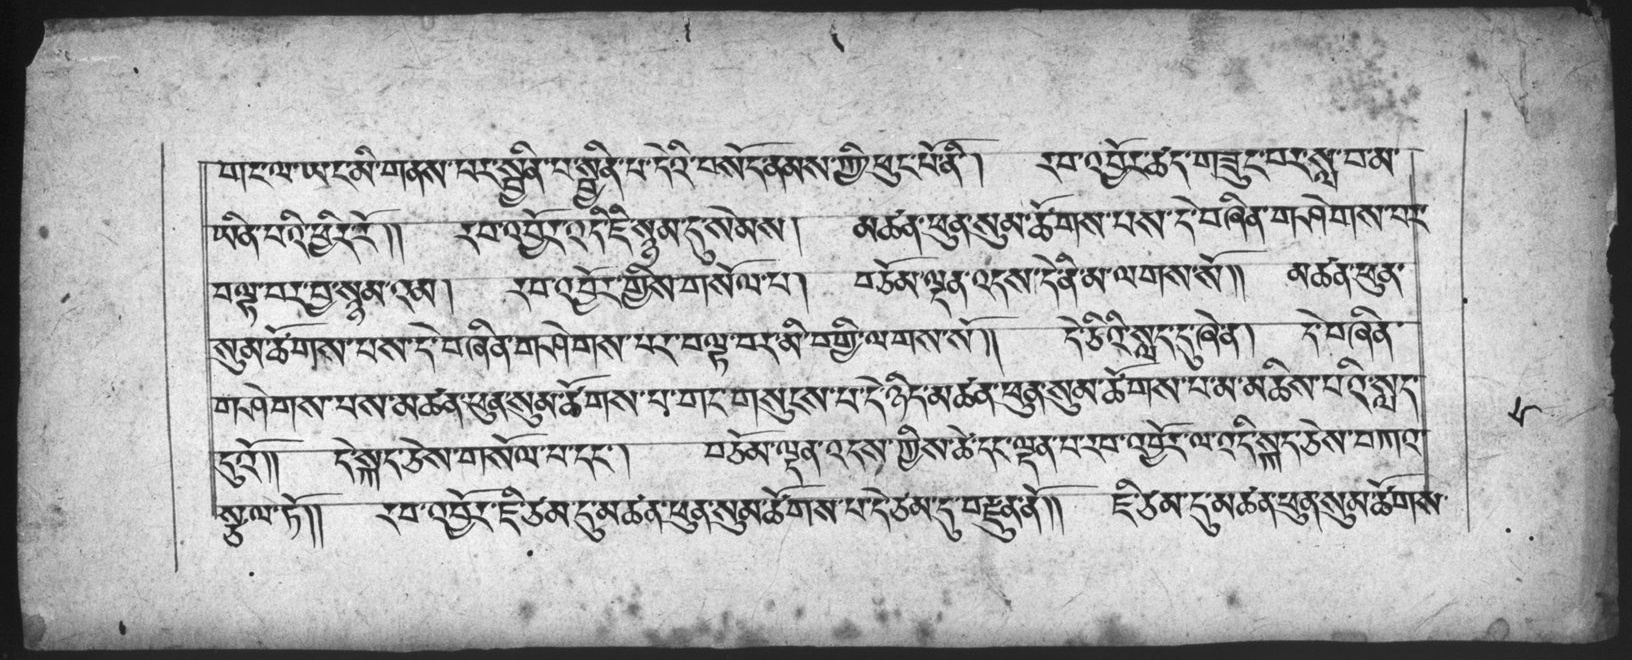 གང་ལ་ཡང་མི་གནས་པར་སྦྱིན་པ་སྦྱིན་པ་དེའི་བསོད་ནམས་ཀྱི་ཕུང་པོ་ནི། རབ་འབྱོར་ཚད་གཟུང་བར་སླ་བ་མ་
ཡིན་པའི་ཕྱིར་རོ།། རབ་འབྱོར་འདི་ཇི་སྙམ་དུ་སེམས། མཚན་ཕུན་སུམ་ཚོགས་པས་དེ་བཞིན་གཤེགས་པར་
བལྟ་བར་བྱ་སྙམ་འམ། རབ་འབྱོར་གྱིས་གསོལ་པ། བཅོམ་ལྡན་འདས་དེ་ནི་མ་ལགས་སོ།། མཚན་ཕུན་
སུམ་ཚོགས་པས་དེ་བཞིན་གཤེགས་པར་བལྟ་བར་མི་བགྱི་ལགས་སོ།། དེ་ཅིའི་སླད་དུ་ཞེན། དེ་བཞིན་
གཤེགས་པས་མཚན་ཕུན་སུམ་ཚོགས་པ་གང་གསུངས་པ་དེ་ཉིད་མཚན་ཕུན་སུམ་ཚོགས་པ་མ་མཆིས་པའི་སླད་
དུའོ།། དེ་སྐད་ཅེས་གསོལ་པ་དང་། བཅོམ་ལྡན་འདས་ཀྱིས་ཚེ་དང་ལྡན་པ་རབ་འབྱོར་ལ་འདི་སྐད་ཅེས་བཀའ་
སྩལ་ཏོ།། རབ་འབྱོར་ཇི་ཙམ་དུ་མཚན་ཕུན་སུམ་ཚོགས་པ་དེ་ཙམ་དུ་བརྫུན་ནོ།། ཇི་ཙམ་དུ་མཚན་ཕུན་སུམ་ཚོགས་